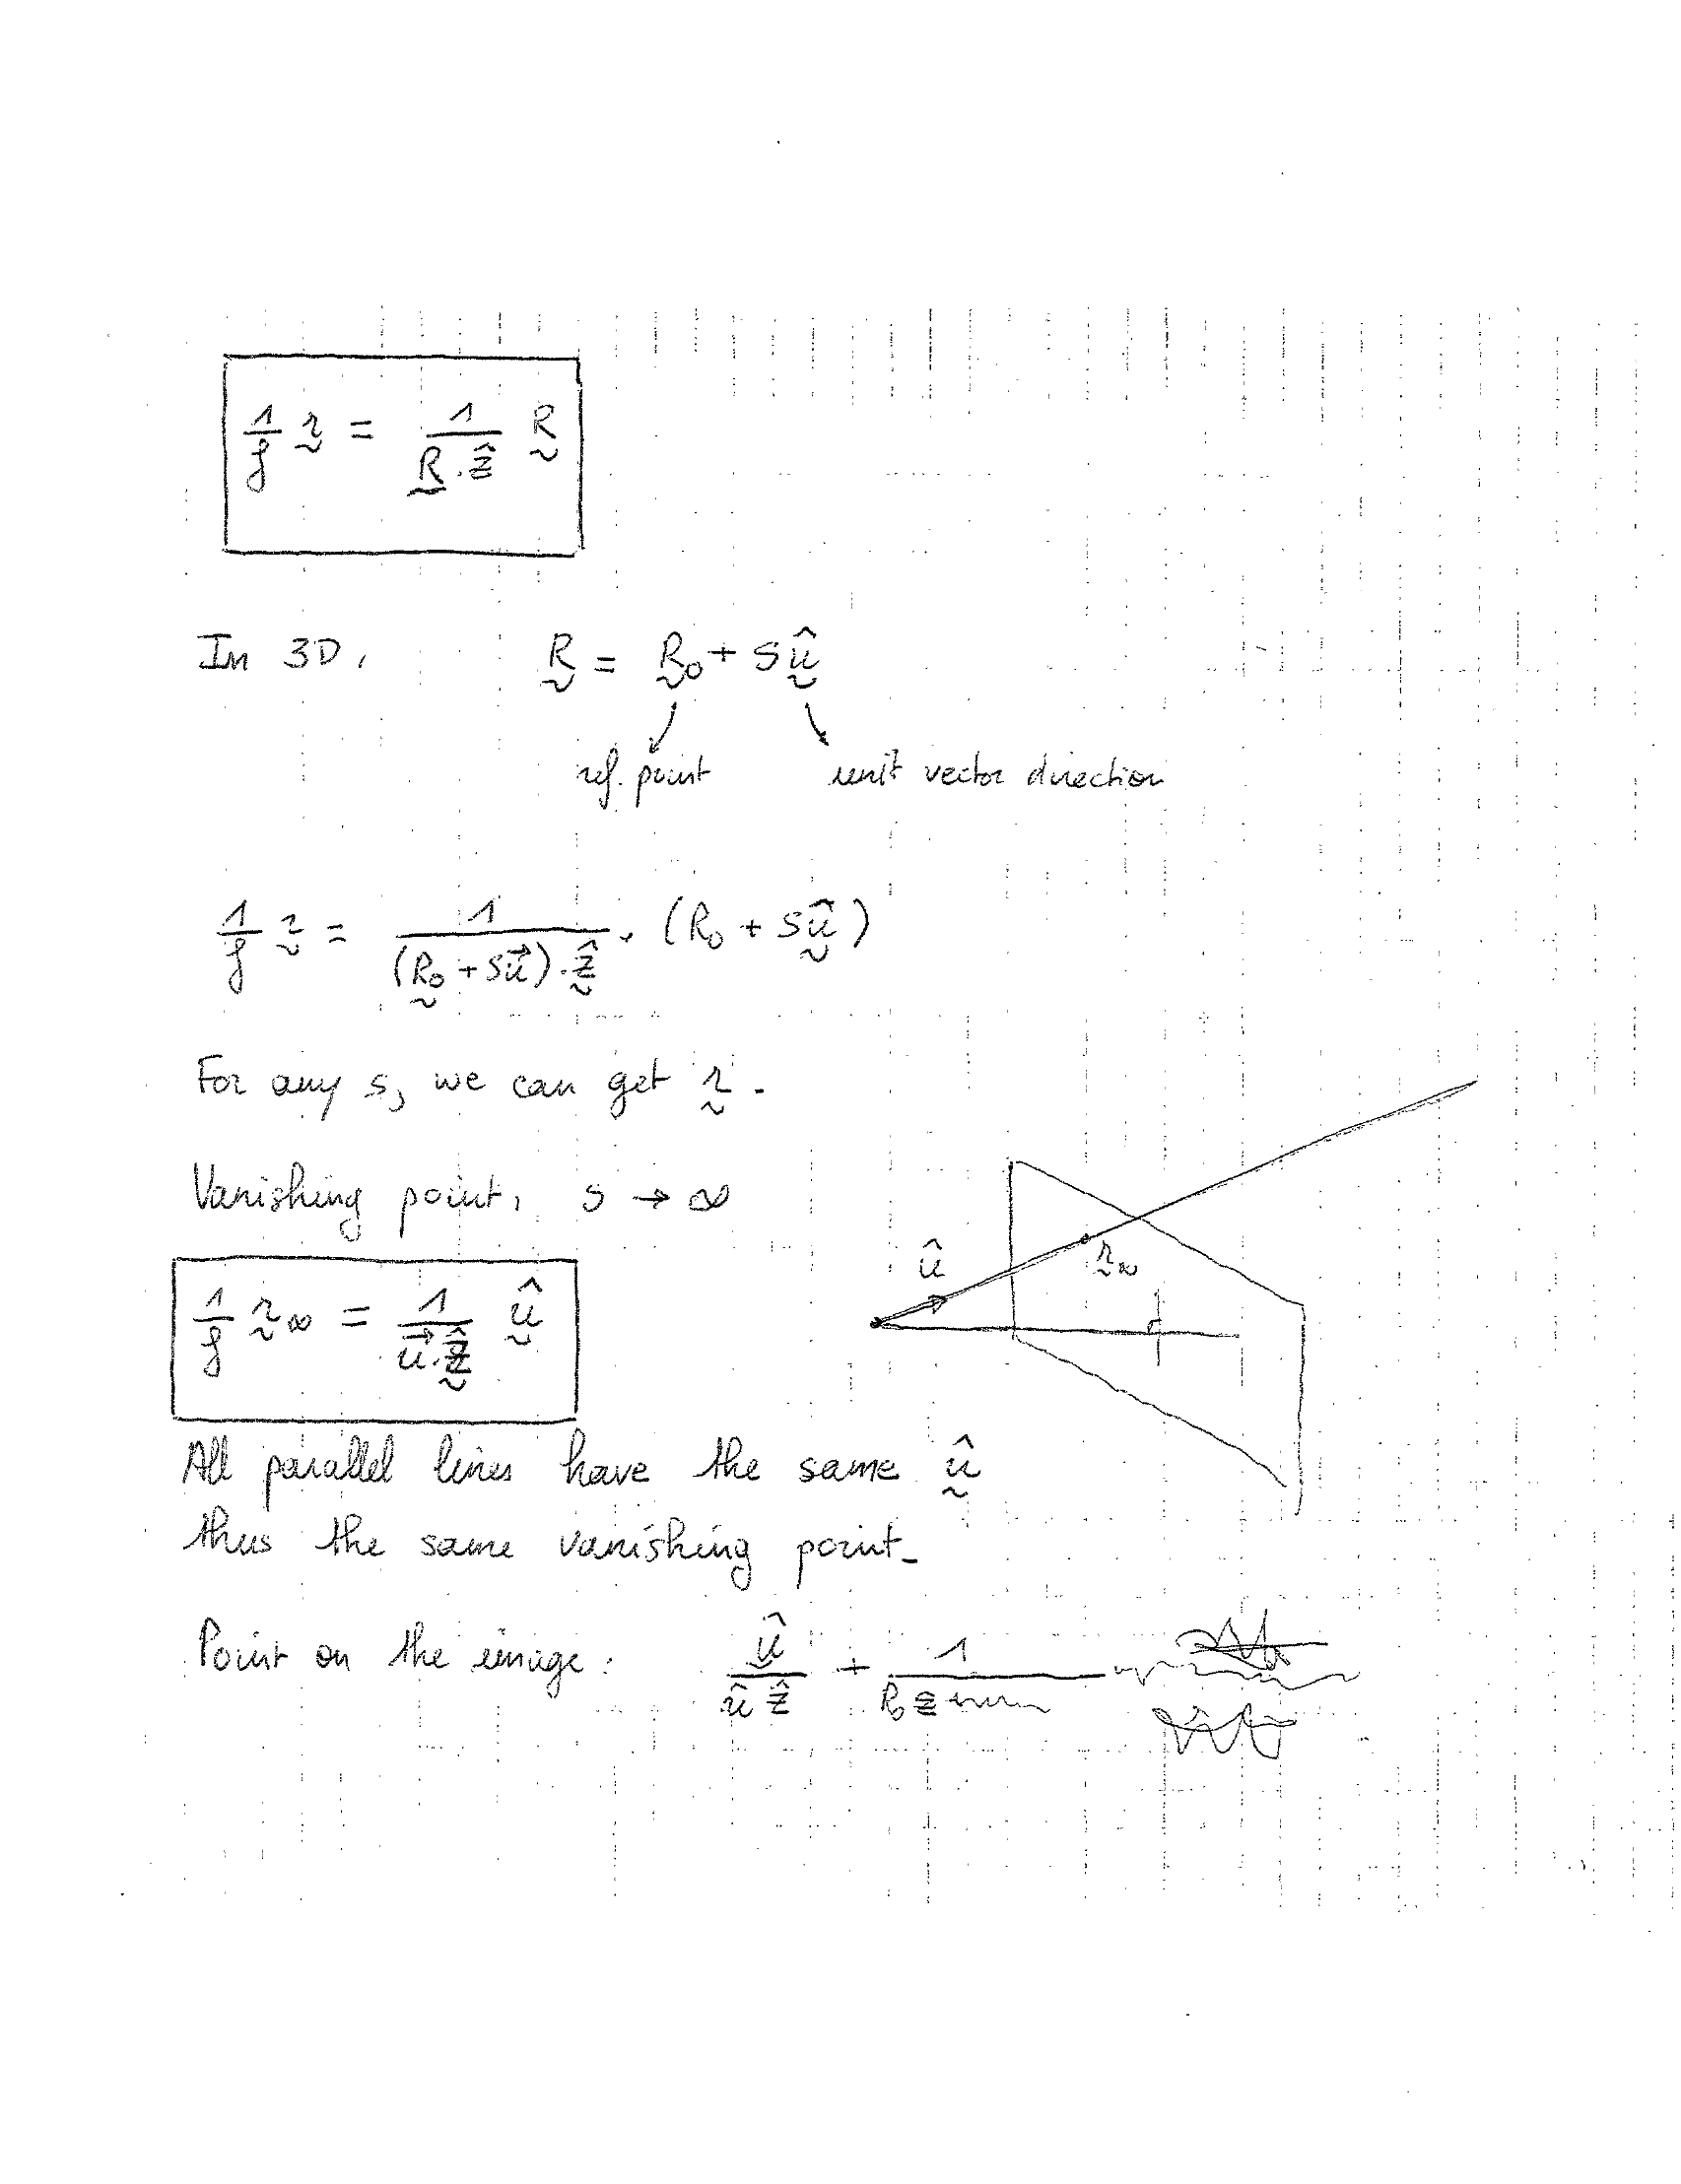 1/f r = 1/(R · ẑ) R
In 3D, R = R₀ + s û
ref. point unit vector direction
1/f r = 1/((R₀ + s u⃗) · ẑ) · (R₀ + s û)
For any s, we can get r.
Vanishing point, s → ∞
û
r∞
1/f r∞ = 1/(u⃗ · ẑ) û
All parallel lines have the same û
thus the same vanishing point.
Point on the image: û/(û ẑ) + 1/(R₀ z